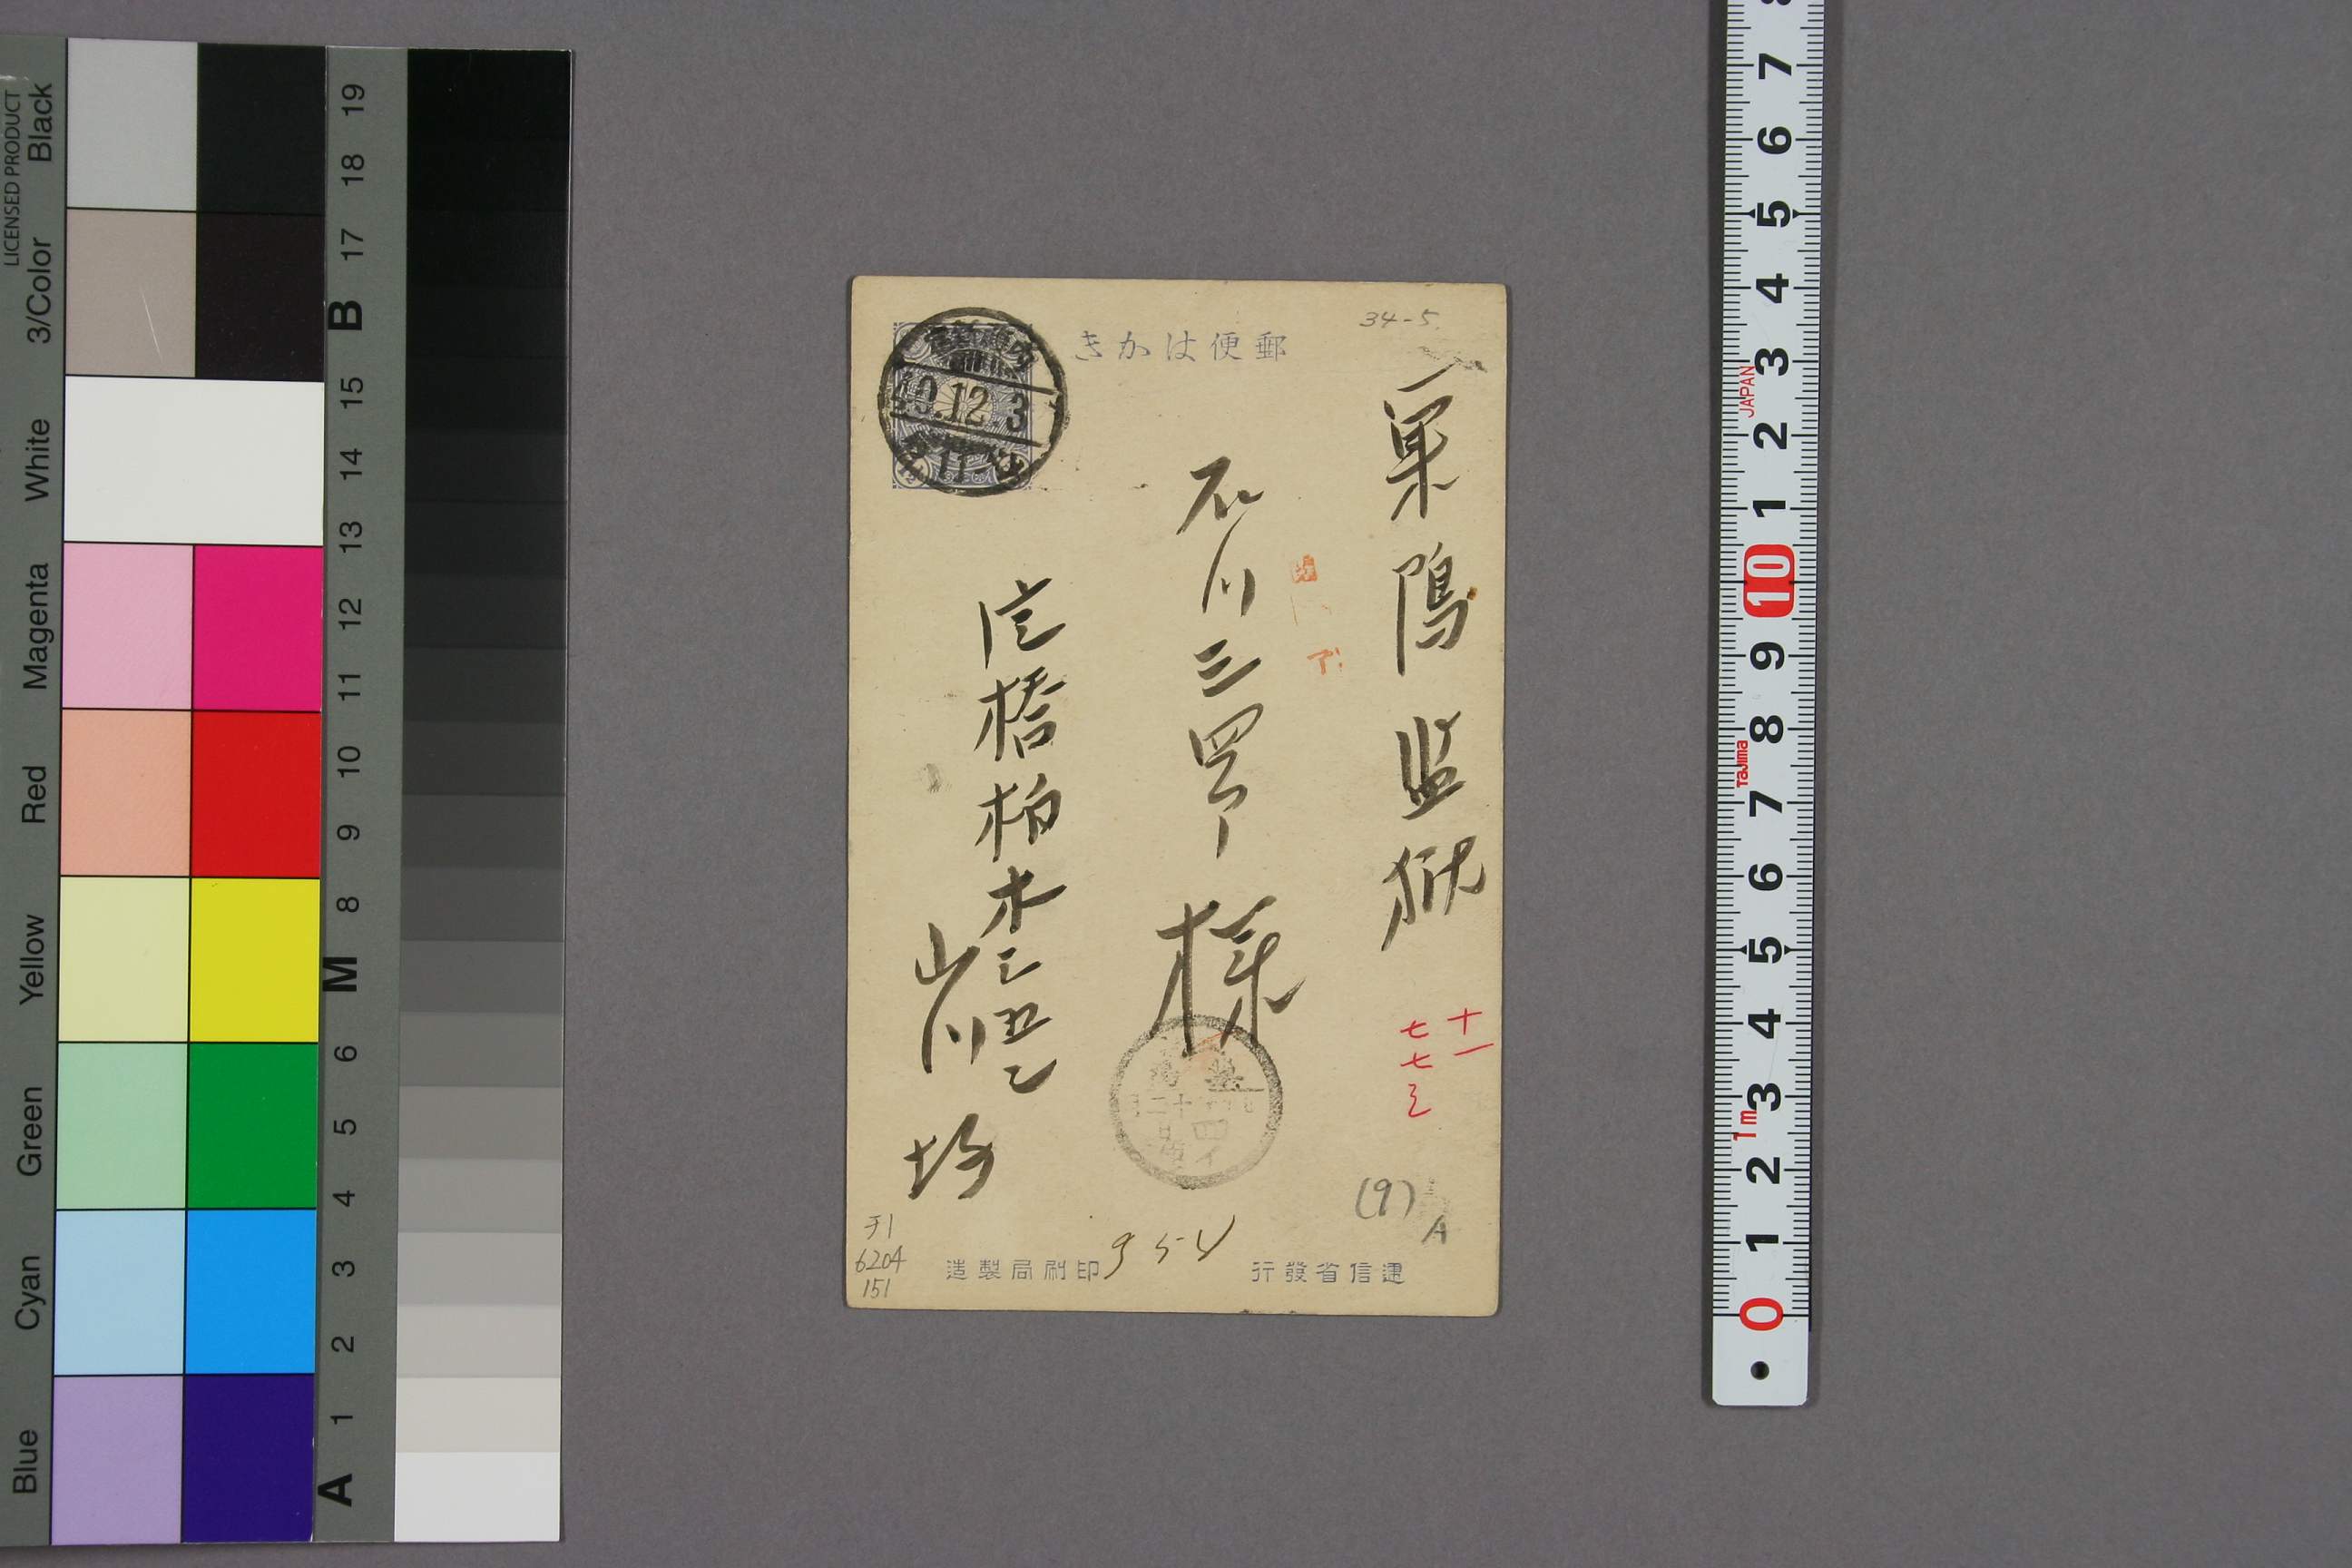 郵便はかき
34-5.
巣鴨監獄
石川三四郎様
淀橋柏木三五二
山川均
十一
七七三
40.12.3
(9)
A
チ1
6204
151
954
逓信省發行
印刷局製造
LICENSED PRODUCT
Black
3/Color
White
Magenta
Red
Yellow
Green
Cyan
Blue
19
18
17
B
15
14
13
12
11
10
9
8
M
6
5
4
3
2
1
A
7
6
5
4
3
2
1
10
9
8
7
6
5
4
3
2
1
0
JAPAN
Tajima
1m